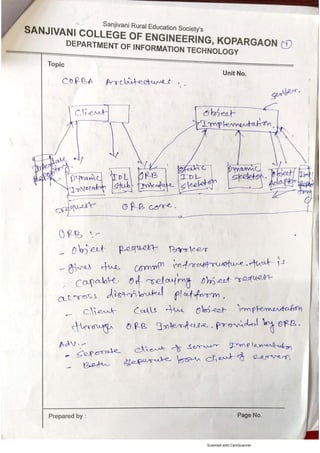 Sanjivani Rural Education Society's
SANJIVANI COLLEGE OF ENGINEERING, KOPARGAON 1
DEPARTMENT OF INFORMATION TECHNOLOGY
Topic
Unit No.
CORBA Architectures :-
server.
Client
Object
Implementation
Interface
Repository
Dynamic
Invocation
IDL
Stub
ORB
Interface
Static
IDL
Skeleton
Dynamic
skeleton
Object
Adapter
request
ORB core.
ORB :-
- Object Request Broker
- gives the common infrastructure that is
capable of relaying object request
across distributed platform.
- Client calls the object implementation
through ORB Interface. provided by ORB.
Adv:-
- Seperate client & server Implementation
- Both seperate from client & server.
Prepared by :
Page No.
Scanned with CamScanner